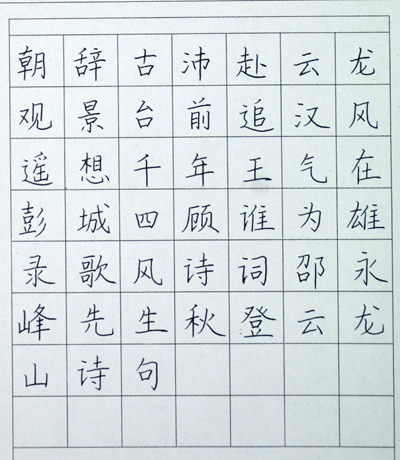 朝辞古沛赴云龙
观景台前追汉风
遥想千年王气在
彭城四顾谁为雄
录歌风诗词邵永
峰先生秋登云龙
山诗句